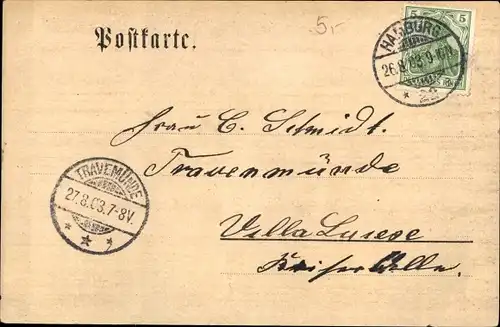 5,-
Postkarte.
5 5
HAMBURG
26.8.03. 9-10
Frau C. Schmidt.
Travemünde
TRAVEMÜNDE
27.8.03. 7-8V.
Villa
Kaiserallee.